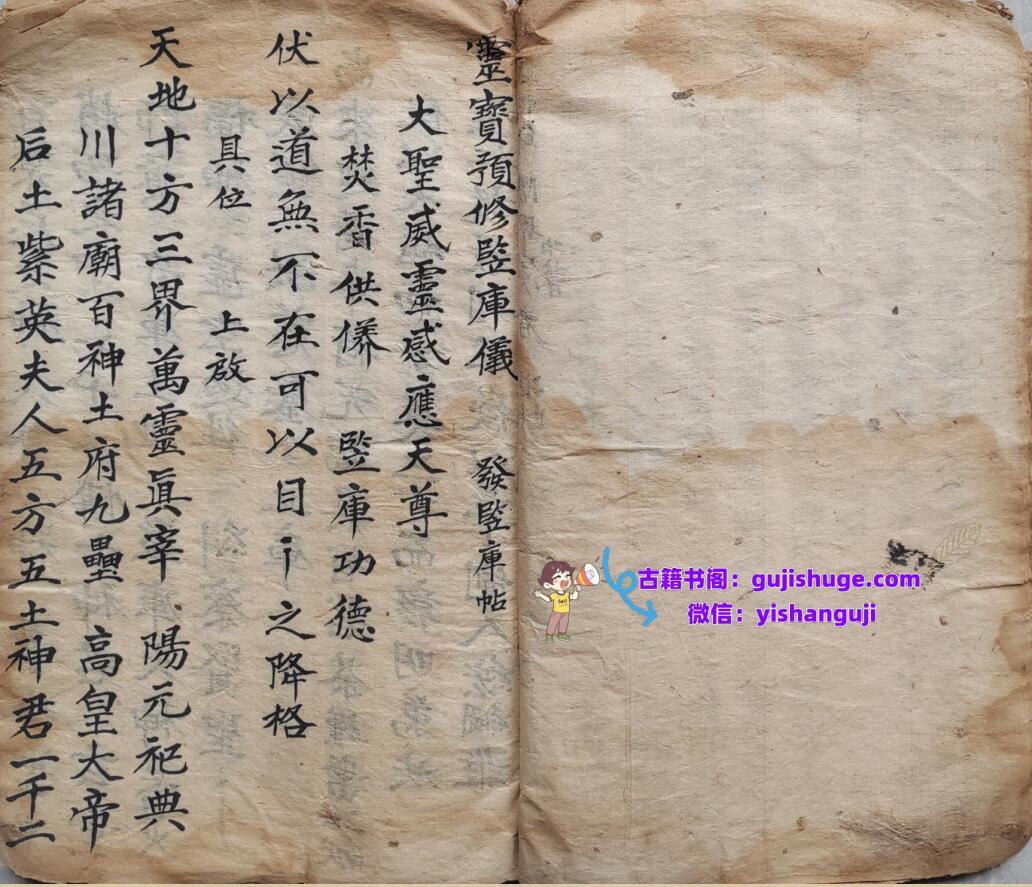 靈寳預修監庫儀 發監庫帖
大聖威靈感應天尊
焚香供養 監庫功德
伏以道無不在可以目 之降格
具位 上啟
天地十方三界萬靈眞宰 陽元祀典
川諸廟百神土府九壘 高皇大帝
后土紫英夫人五方五土神君一千二
古籍书阁：gujishuge.com
微信：yishanguji